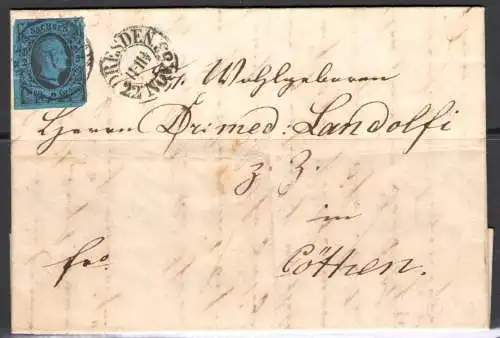 SACHSEN
DRESDEN
22 NOV
Sr. Wohlgeboren
Herrn Dr: med: Landolfi
z. Z.
in
fro.
Cöthen.